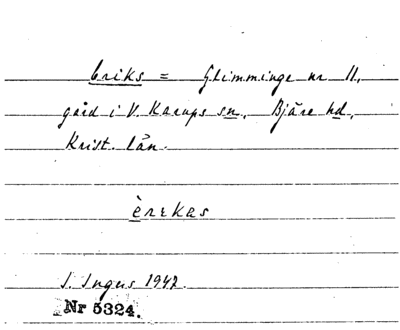 Eriks = Glimminge nr 11,
gård i V. Karups sn, Bjäre hd,
Krist. län.
èrekas
I. Ingers 1942.
Nr 5324.